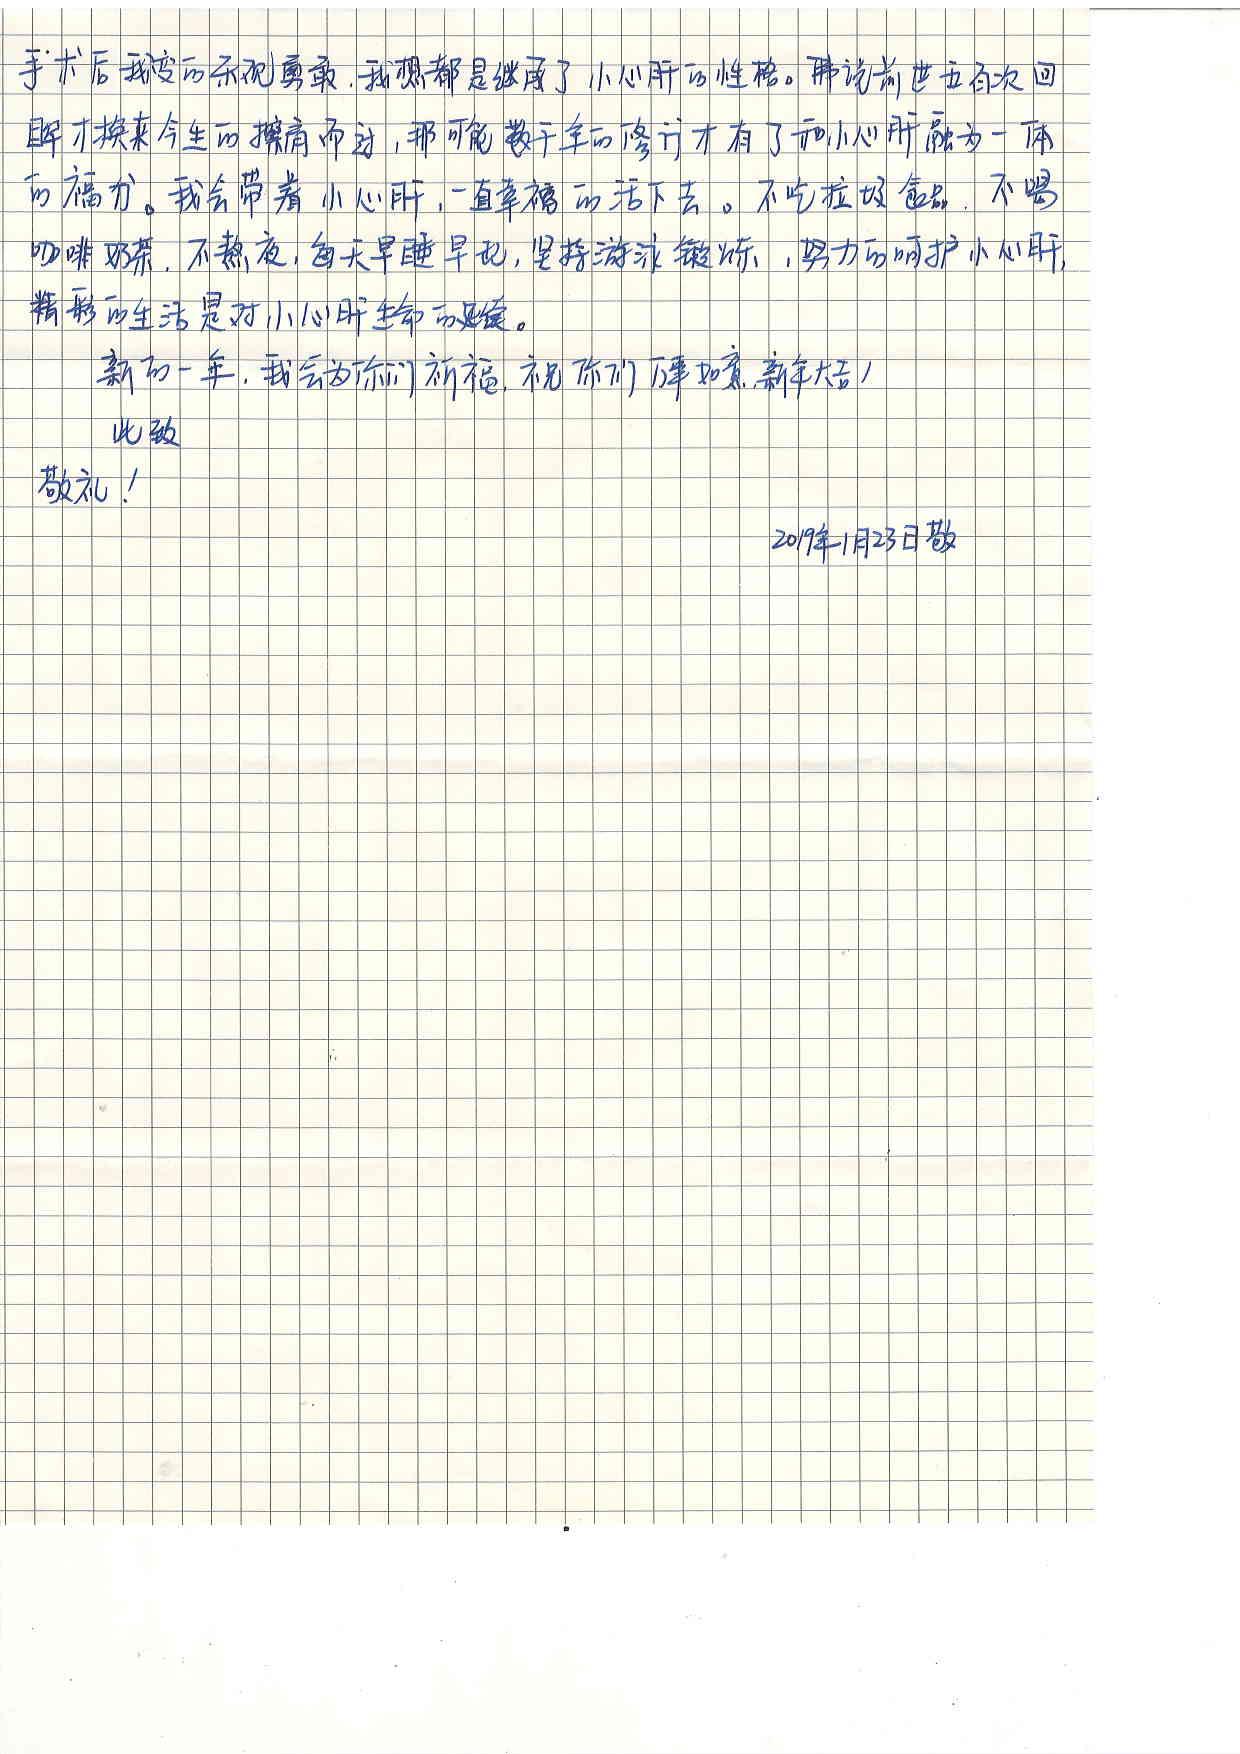 手术后我变的乐观勇敢,我想都是继承了小心肝的性格。佛说前世五百次回
眸才换来今生的擦肩而过,那可能数千年的修行才有了和小心肝融为一体
的福分。我会带着小心肝,一直幸福的活下去。不吃垃圾食品,不喝
咖啡奶茶,不熬夜,每天早睡早起,坚持游泳锻炼,努力的呵护小心肝,
精彩的生活是对小心肝生命的延续。
新的一年,我会为你们祈福,祝你们万事如意,新年大吉!
此致
敬礼!
2019年1月23日敬